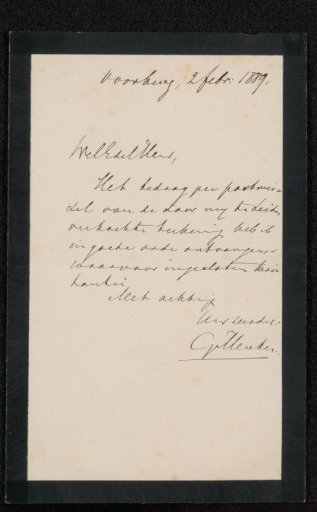 Voorburg, 2 febr: 1889.
WelEdel Heer,
Het bedrag per postwis-
sel van de door mij te Leiden
verkochte teekening heb ik
in goede orde ontvangen
waarvoor ingesloten
Met achting
Uw